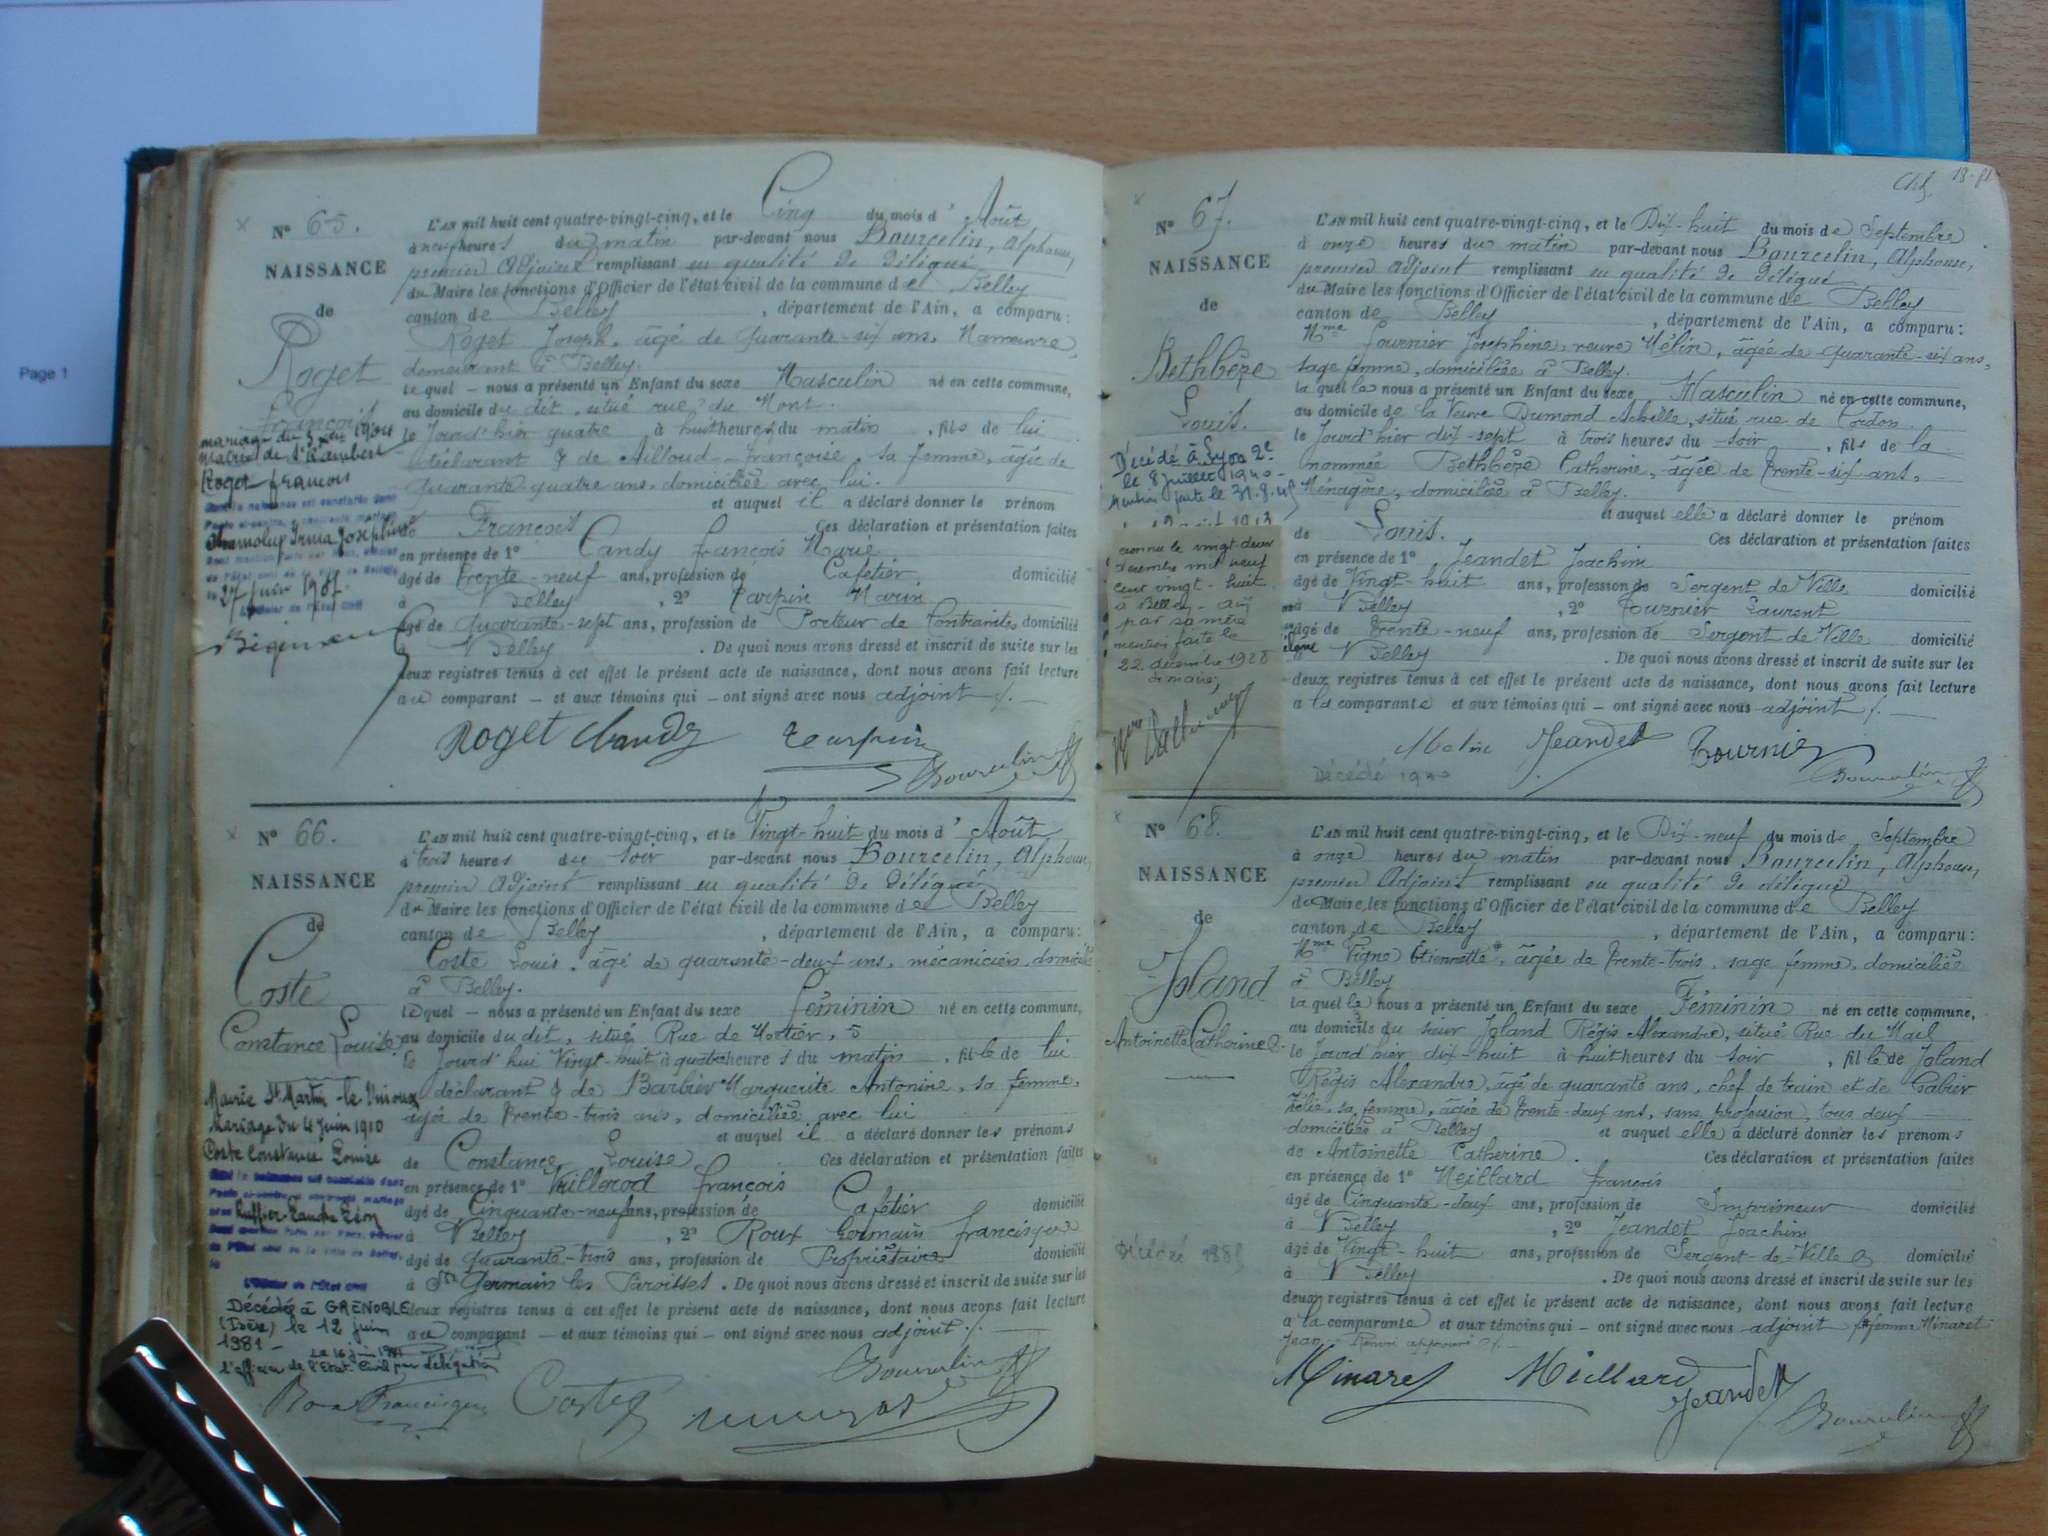 Page 1
N° 65.
NAISSANCE
de
Roget
François
mariage du
Mairie de St Rambert
Roget François
Irma Joséphine
27 1905.
L'AN mil huit cent quatre-vingt-cinq, et le Cinq du mois d' Août
à neuf heures du matin par-devant nous Bourcelin, Alphonse,
premier Adjoint remplissant en qualité de délégué
du Maire les fonctions d'Officier de l'état civil de la commune de Belley
canton de Belley, département de l'Ain, a comparu:
Roget Joseph, âgé de quarante-six ans, Manœuvre,
demeurant à Belley.
lequel — nous a présenté un Enfant du sexe Masculin né en cette commune,
au domicile du dit, situé rue du Mont.
le Jourd'hier quatre à huit heures du matin, fils de lui
déclarant & de Ailloud Françoise, sa femme, âgée de
quarante quatre ans, domiciliée avec lui.
et auquel il a déclaré donner le prénom
de François Ces déclaration et présentation faites
en présence de 1° Candy François Marie
âgé de trente-neuf ans, profession de Cafetier domicilié
à Belley, 2° Marin
âgé de quarante-sept ans, profession de Porteur de Contraintes domicilié
à Belley. De quoi nous avons dressé et inscrit de suite sur les
deux registres tenus à cet effet le présent acte de naissance, dont nous avons fait lecture
au comparant — et aux témoins qui — ont signé avec nous adjoint ./. —
Roget Candy Bourcelin
N° 66.
NAISSANCE
de
Coste
Constance Louise
Mairie St Martin-le-Vinoux
Mariage du 4 Juin 1910
Coste Constance Louise
Léon
L'Officier de l'Etat Civil
Décédée à GRENOBLE
(Isère) le 12 juin
1981 —
Le 16 juin 1981
l'officier de l'Etat-Civil par délégation
L'AN mil huit cent quatre-vingt-cinq, et le Vingt-huit du mois d' Août
à trois heures du soir par-devant nous Bourcelin, Alphonse,
premier Adjoint remplissant en qualité de délégué
du Maire les fonctions d'Officier de l'état civil de la commune de Belley
canton de Belley, département de l'Ain, a comparu:
Coste Louis, âgé de quarante-deux ans, mécanicien, domicilié
à Belley.
lequel — nous a présenté un Enfant du sexe Féminin né en cette commune,
au domicile du dit, situé Rue de
le Jourd'hui Vingt-huit à quatre heures du matin, fille de lui
déclarant & de Barbier Marguerite Antonine, sa femme,
âgée de trente-trois ans, domiciliée avec lui
et auquel il a déclaré donner les prénoms
de Constance Louise Ces déclaration et présentation faites
en présence de 1° Vuillerod François
âgé de Cinquante-neuf ans, profession de Cafetier domicilié
à Belley, 2° Roux Germain Francisque
âgé de quarante-trois ans, profession de Propriétaire domicilié
à St Germain les Paroisses. De quoi nous avons dressé et inscrit de suite sur les
deux registres tenus à cet effet le présent acte de naissance, dont nous avons fait lecture
au comparant — et aux témoins qui — ont signé avec nous adjoint ./. —
Bourcelin
Roux Francisque Coste
N° 67.
NAISSANCE
de
Bethbèze
Louis.
Décédé à Lyon 2e
le 8 juillet 1940 —
Mention faite le 31.8.45
1913
reconnu le vingt-deux
décembre mil neuf
cent vingt-huit
à Belley
par sa mère
mention faite le
22 décembre 1928
Le maire,
L'AN mil huit cent quatre-vingt-cinq, et le Dix-huit du mois de Septembre
à onze heures du matin par-devant nous Bourcelin, Alphonse,
premier Adjoint remplissant en qualité de délégué
du Maire les fonctions d'Officier de l'état civil de la commune de Belley
canton de Belley, département de l'Ain, a comparu:
Mme Fournier Joséphine, veuve Mélin, âgée de quarante-six ans,
sage femme, domiciliée à Belley.
laquelle nous a présenté un Enfant du sexe Masculin né en cette commune,
au domicile de la Veuve Dumond Achille, situé rue de Cordon.
le Jourd'hier dix-sept à trois heures du soir, fils de la
nommée Bethbèze Catherine, âgée de trente-six ans,
Ménagère, domiciliée à Belley.
et auquel elle a déclaré donner le prénom
de Louis. Ces déclaration et présentation faites
en présence de 1° Jeandet Joachim
âgé de Vingt-huit ans, profession de Sergent de Ville domicilié
à Belley, 2° Tournier Laurent
âgé de trente-neuf ans, profession de Sergent de Ville domicilié
à Belley. De quoi nous avons dressé et inscrit de suite sur les
deux registres tenus à cet effet le présent acte de naissance, dont nous avons fait lecture
a la comparante et aux témoins qui — ont signé avec nous adjoint ./. —
Melin Jeandet Tournier Bourcelin
Décédé 1940
N° 68.
NAISSANCE
de
Joland
Antoinette Catherine
Décédé
L'AN mil huit cent quatre-vingt-cinq, et le Dix-neuf du mois de Septembre
à onze heures du matin par-devant nous Bourcelin, Alphonse,
premier Adjoint remplissant en qualité de délégué
du Maire les fonctions d'Officier de l'état civil de la commune de Belley
canton de Belley, département de l'Ain, a comparu:
Mme Vigne Etiennette*, âgée de trente-trois, sage femme, domiciliée
à Belley
laquelle nous a présenté un Enfant du sexe Féminin né en cette commune,
au domicile du sieur Joland Régis Alexandre, situé Rue du Mail
le Jourd'hier dix-huit à huit heures du soir, fille de Joland
Régis Alexandre, âgé de quarante ans, chef de train et de
Zélie, sa femme, âgée de trente-deux ans, sans profession, tous deux
domiciliés à Belley et auquel elle a déclaré donner les prénoms
de Antoinette Catherine. Ces déclaration et présentation faites
en présence de 1° Meillard François
âgé de Cinquante-deux ans, profession de Imprimeur domicilié
à Belley, 2° Jeandet Joachim
âgé de Vingt-huit ans, profession de Sergent-de-Ville domicilié
à Belley. De quoi nous avons dressé et inscrit de suite sur les
deux registres tenus à cet effet le présent acte de naissance, dont nous avons fait lecture
a la comparante et aux témoins qui — ont signé avec nous adjoint *femme Minaret
Jean. Renvoi approuvé ./. —
Minaret Meillard Jeandet Bourcelin